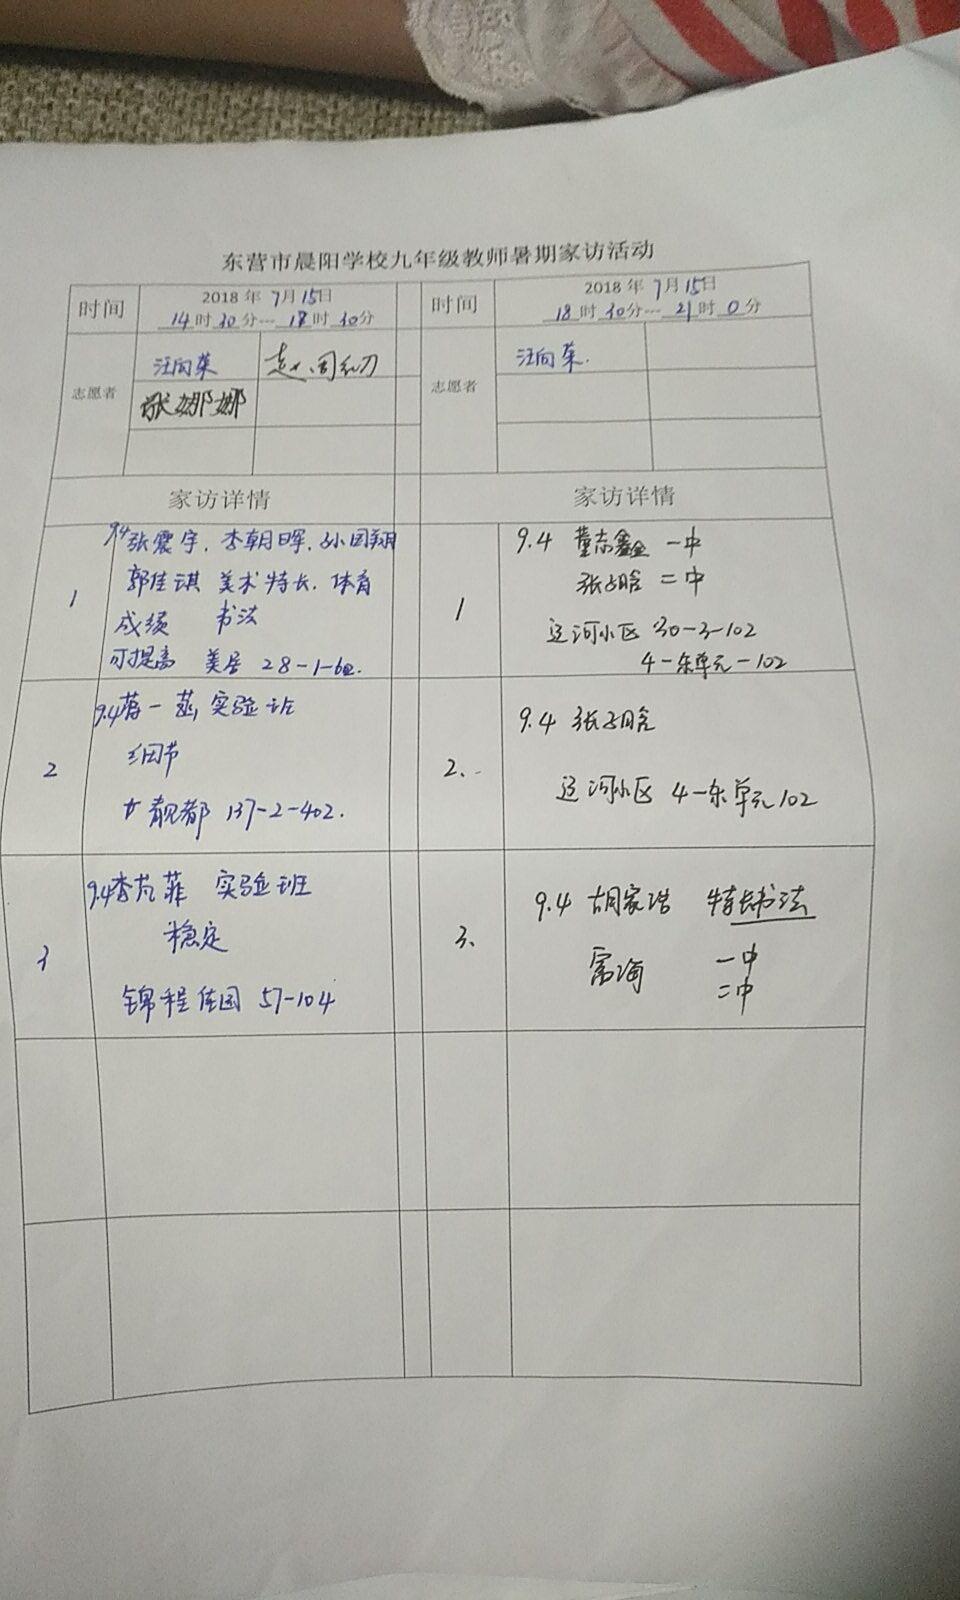 东营市晨阳学校九年级教师暑期家访活动
时间
2018年7月15日
14时30分---18时30分
志愿者
汪向荣
张娜娜
家访详情
1
9.4 张震宇.李朝晖.孙国翔
郭佳琪 美术特长.体育
成绩 书法
可提高 美居 28-1-602.
2
9.4 一 实验班
细节
靓都 137-2-402.
3
9.4 李芃菲 实验班
稳定
锦程佳园 57-104
时间
2018年7月15日
18时30分---21时0分
志愿者
汪向荣.
家访详情
1
9.4 董志鑫 一中
张子晗 二中
辽河小区 30-3-102
4-东单元-102
2.
9.4 张子晗
辽河小区 4-东单元102
3.
9.4 胡家浩 特长书法
富海 一中
二中